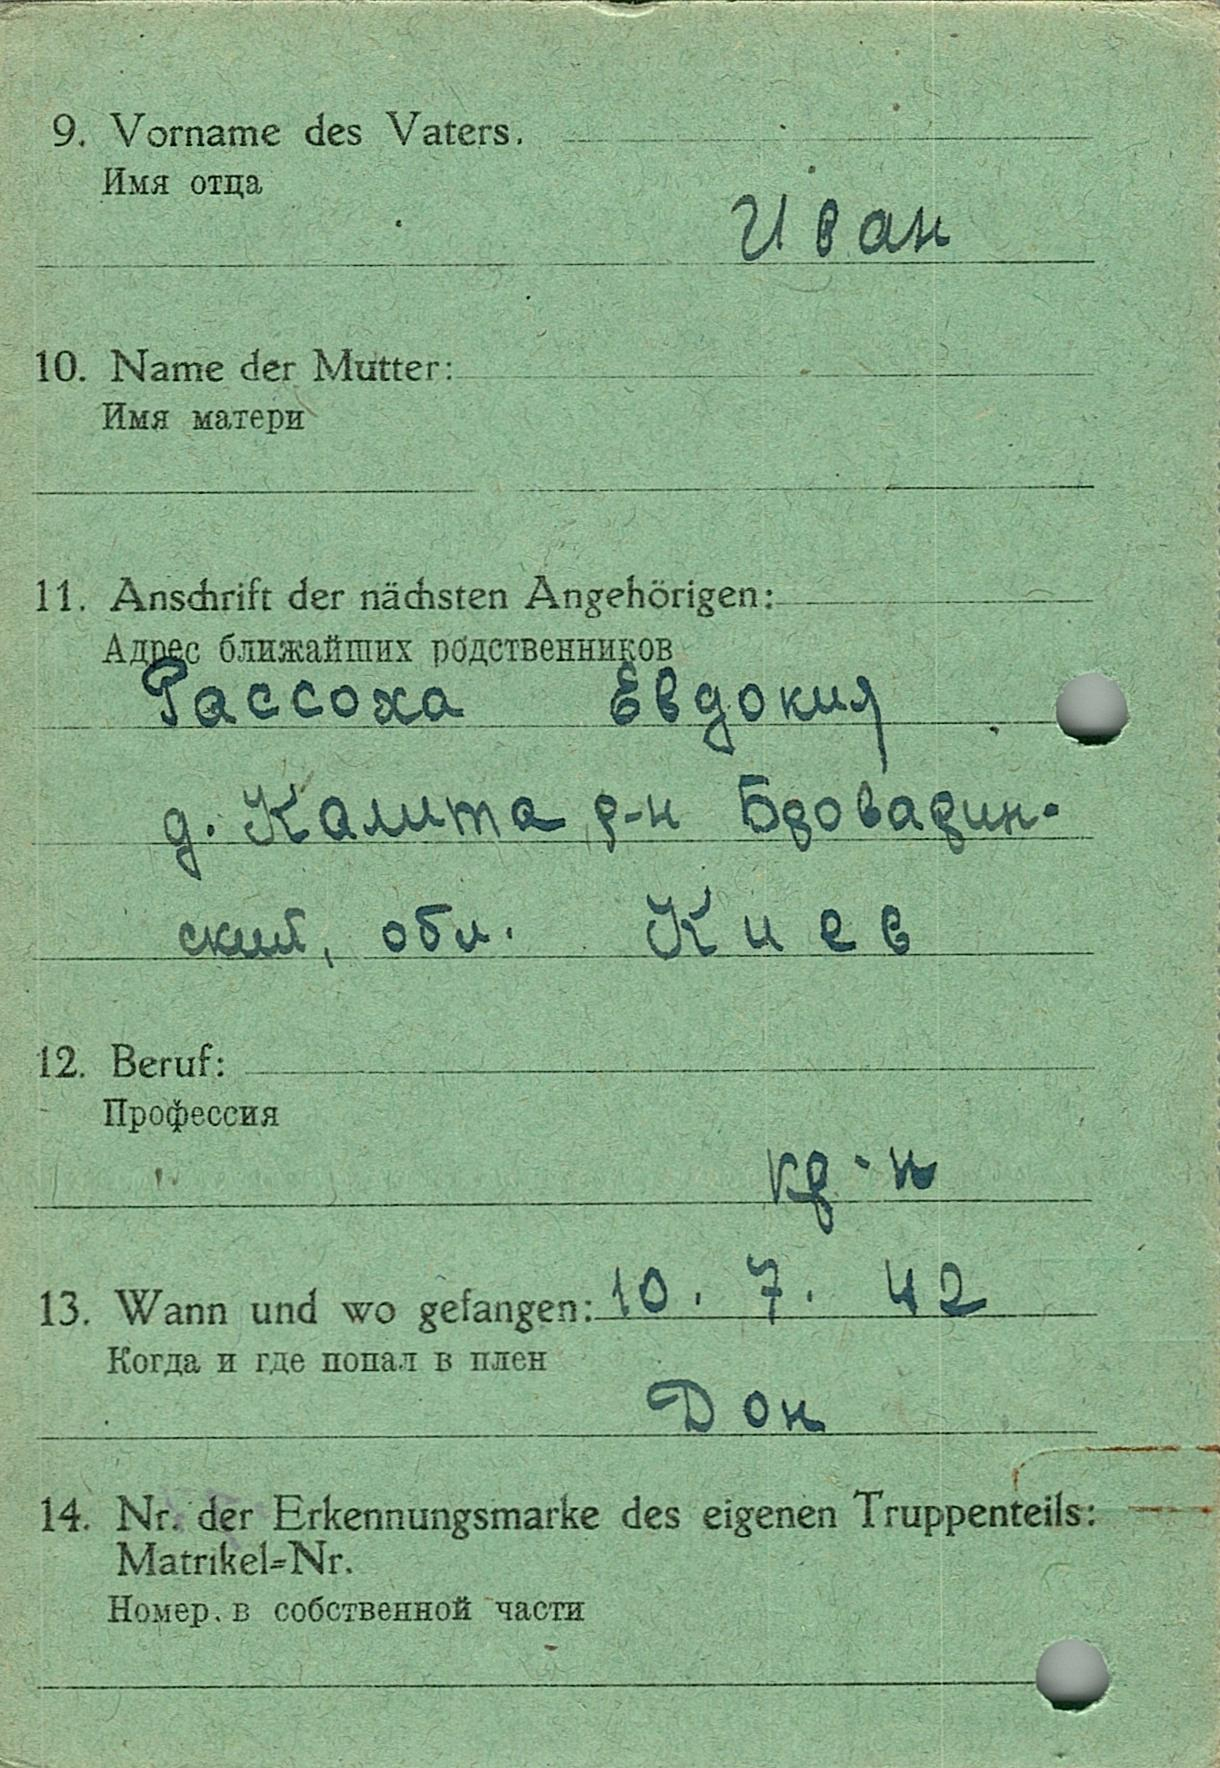 9. Vorname des Vaters.
Имя отца
Иван
10. Name der Mutter:
Имя матери
11. Anschrift der nächsten Angehörigen:
Адрес ближайших родственников
Рассоха Евдокия
д. Калита р-н Броварин-
ский, обл. Киев
12. Beruf:
Профессия
кр-н
13. Wann und wo gefangen: 10. 7. 42
Когда и где попал в плен
Дон
14. Nr. der Erkennungsmarke des eigenen Truppenteils:
Matrikel-Nr.
Номер. в собственной части